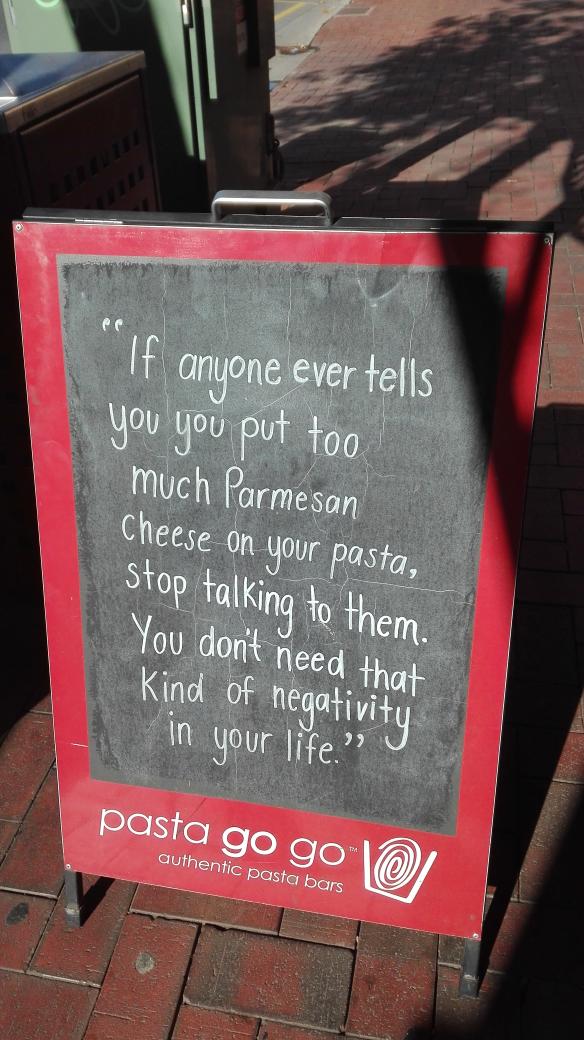 “If anyone ever tells
you you put too
much Parmesan
cheese on your pasta,
stop talking to them.
You don't need that
kind of negativity
in your life.”
pasta go go™
authentic pasta bars